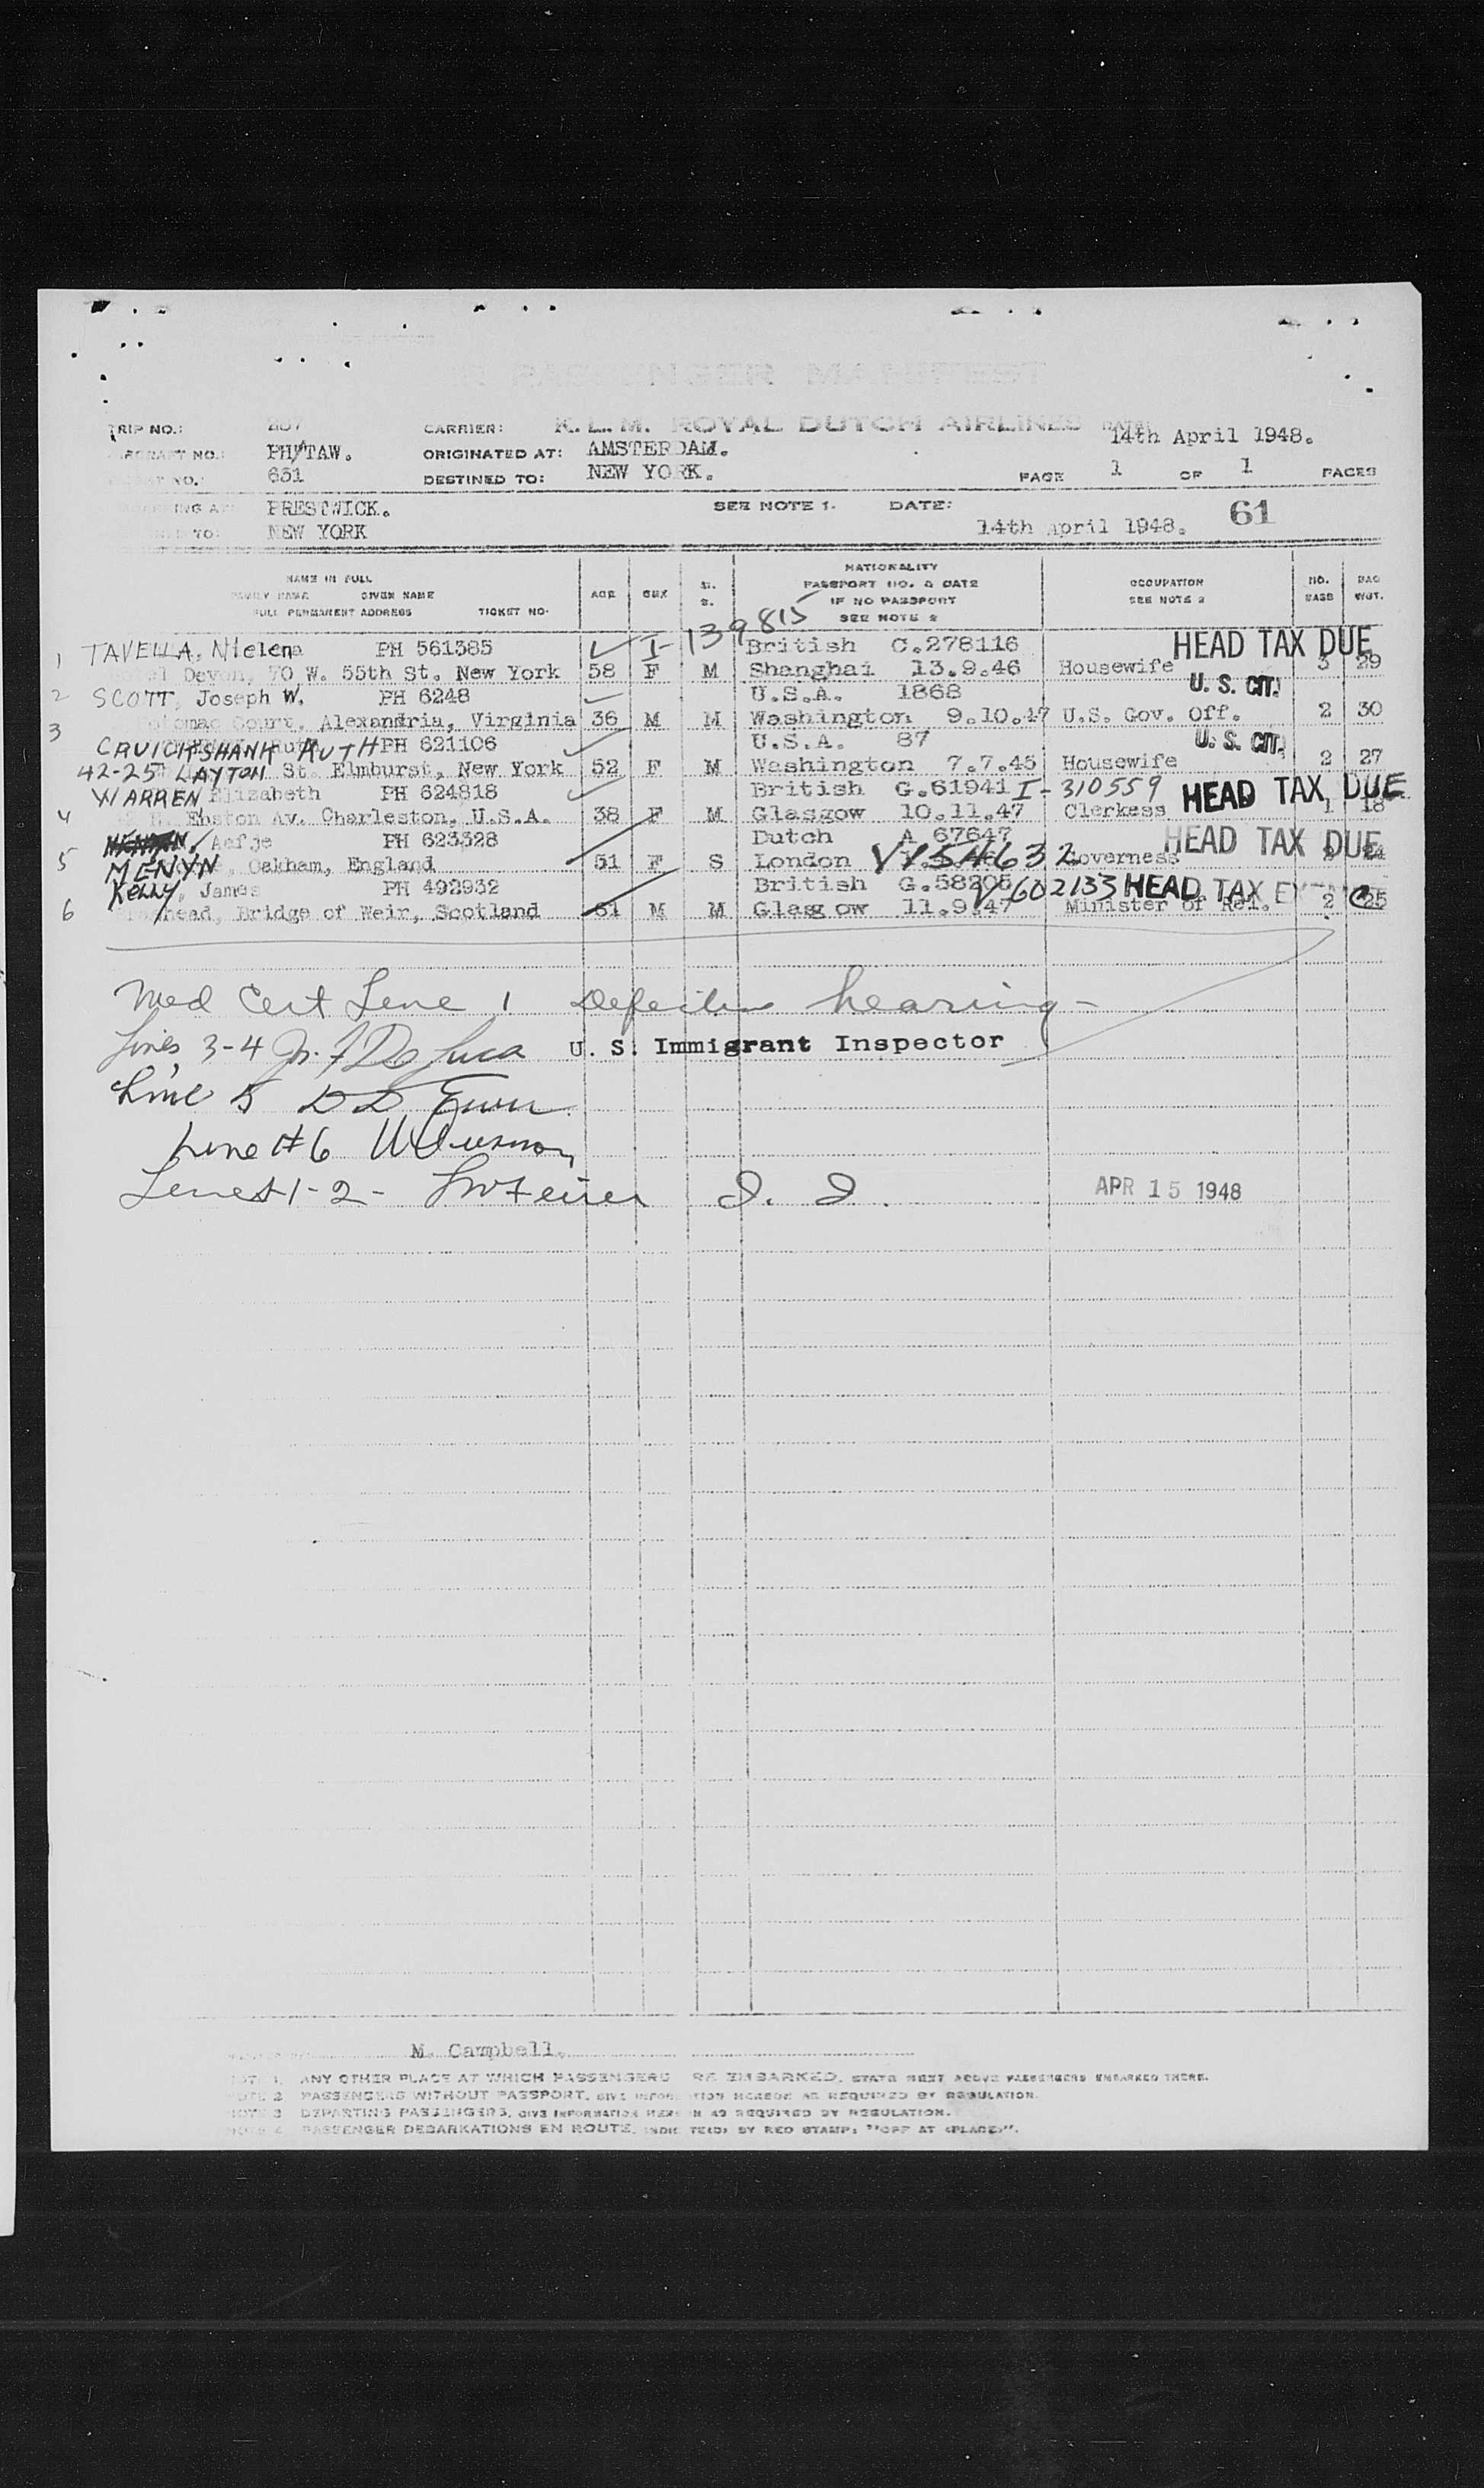 PASSENGER MANIFEST
TRIP NO.: CARRIER: K.L.M. ROYAL DUTCH AIRLINES 14th April 1948.
AIRCRAFT NO.: PH/TAW. ORIGINATED AT: AMSTERDAM.
NO.: 631 DESTINED TO: NEW YORK. PAGE 1 OF 1 PAGES
PRESTWICK. SEE NOTE 1. DATE: 14th April 1948. 61
TO: NEW YORK
NAME IN FULL
FAMILY NAME GIVEN NAME
FULL PERMANENT ADDRESS TICKET NO.
AGE SEX
NATIONALITY
PASSPORT NO. & DATE
IF NO PASSPORT
SEE NOTE 2
OCCUPATION
SEE NOTE 3
NO. BAGS
BAG WGT.
1 TAVELLA, Helena PH 561385 I-139815 British C.278116 HEAD TAX DUE
Devon, 70 W. 55th St. New York 58 F M Shanghai 13.9.46 Housewife 3 29
2 SCOTT, Joseph W. PH 6248 U.S.A. 1868 U. S. CIT.
Court, Alexandria, Virginia 36 M M Washington 9.10.47 U.S. Gov. Off. 2 30
3 CRUICKSHANK RUTH PH 621106 U.S.A. 87 U. S. CIT.
42-25 LAYTON St. Elmhurst, New York 52 F M Washington 7.7.45 Housewife 2 27
4 WARREN Elizabeth PH 624818 British G.61941 I-310559 HEAD TAX DUE
Enston Av. Charleston, U.S.A. 38 F M Glasgow 10.11.47 Clerkess 1 18
5 Aefje PH 623328 Dutch A 67647 HEAD TAX DUE
MENYN, Oakham, England 51 F S London Governess
6 Kelly, James PH 492932 British G.58205 V 602133 HEAD TAX
head, Bridge of Weir, Scotland 61 M M Glasgow 11.9.47 Minister of Rel. 2 25
Med Cert Line 1 Defective hearing -
Lines 3-4 De Luca U. S. Immigrant Inspector
Line 5
Line #6
Lines 1-2 - I. I. APR 15 1948
M. Campbell.
NOTE 1. ANY OTHER PLACE AT WHICH PASSENGERS ARE EMBARKED, STATE NEXT ABOVE PASSENGERS EMBARKED THERE.
NOTE 2 PASSENGERS WITHOUT PASSPORT, GIVE INFORMATION HEREON AS REQUIRED BY REGULATION.
NOTE 3 DEPARTING PASSENGERS, GIVE INFORMATION HEREON AS REQUIRED BY REGULATION.
NOTE 4 PASSENGER DEBARKATIONS EN ROUTE, INDICATED BY RED STAMP: "OFF AT (PLACE)".